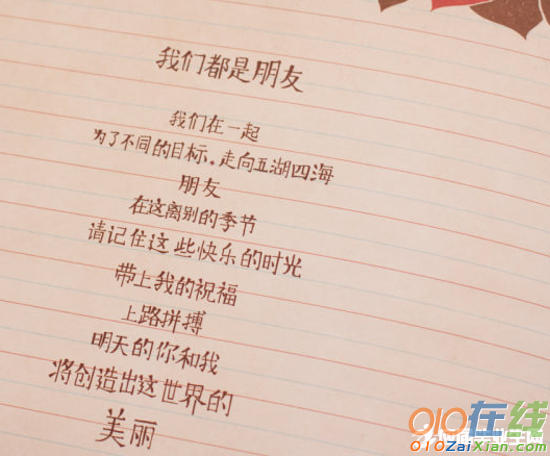 我们都是朋友
我们在一起
为了不同的目标。走向五湖四海
朋友
在这离别的季节
请记住这些快乐的时光
带上我的祝福
上路拼搏
明天的你和我
将创造出这世界的
美丽
010在线
010ZaiXian.com